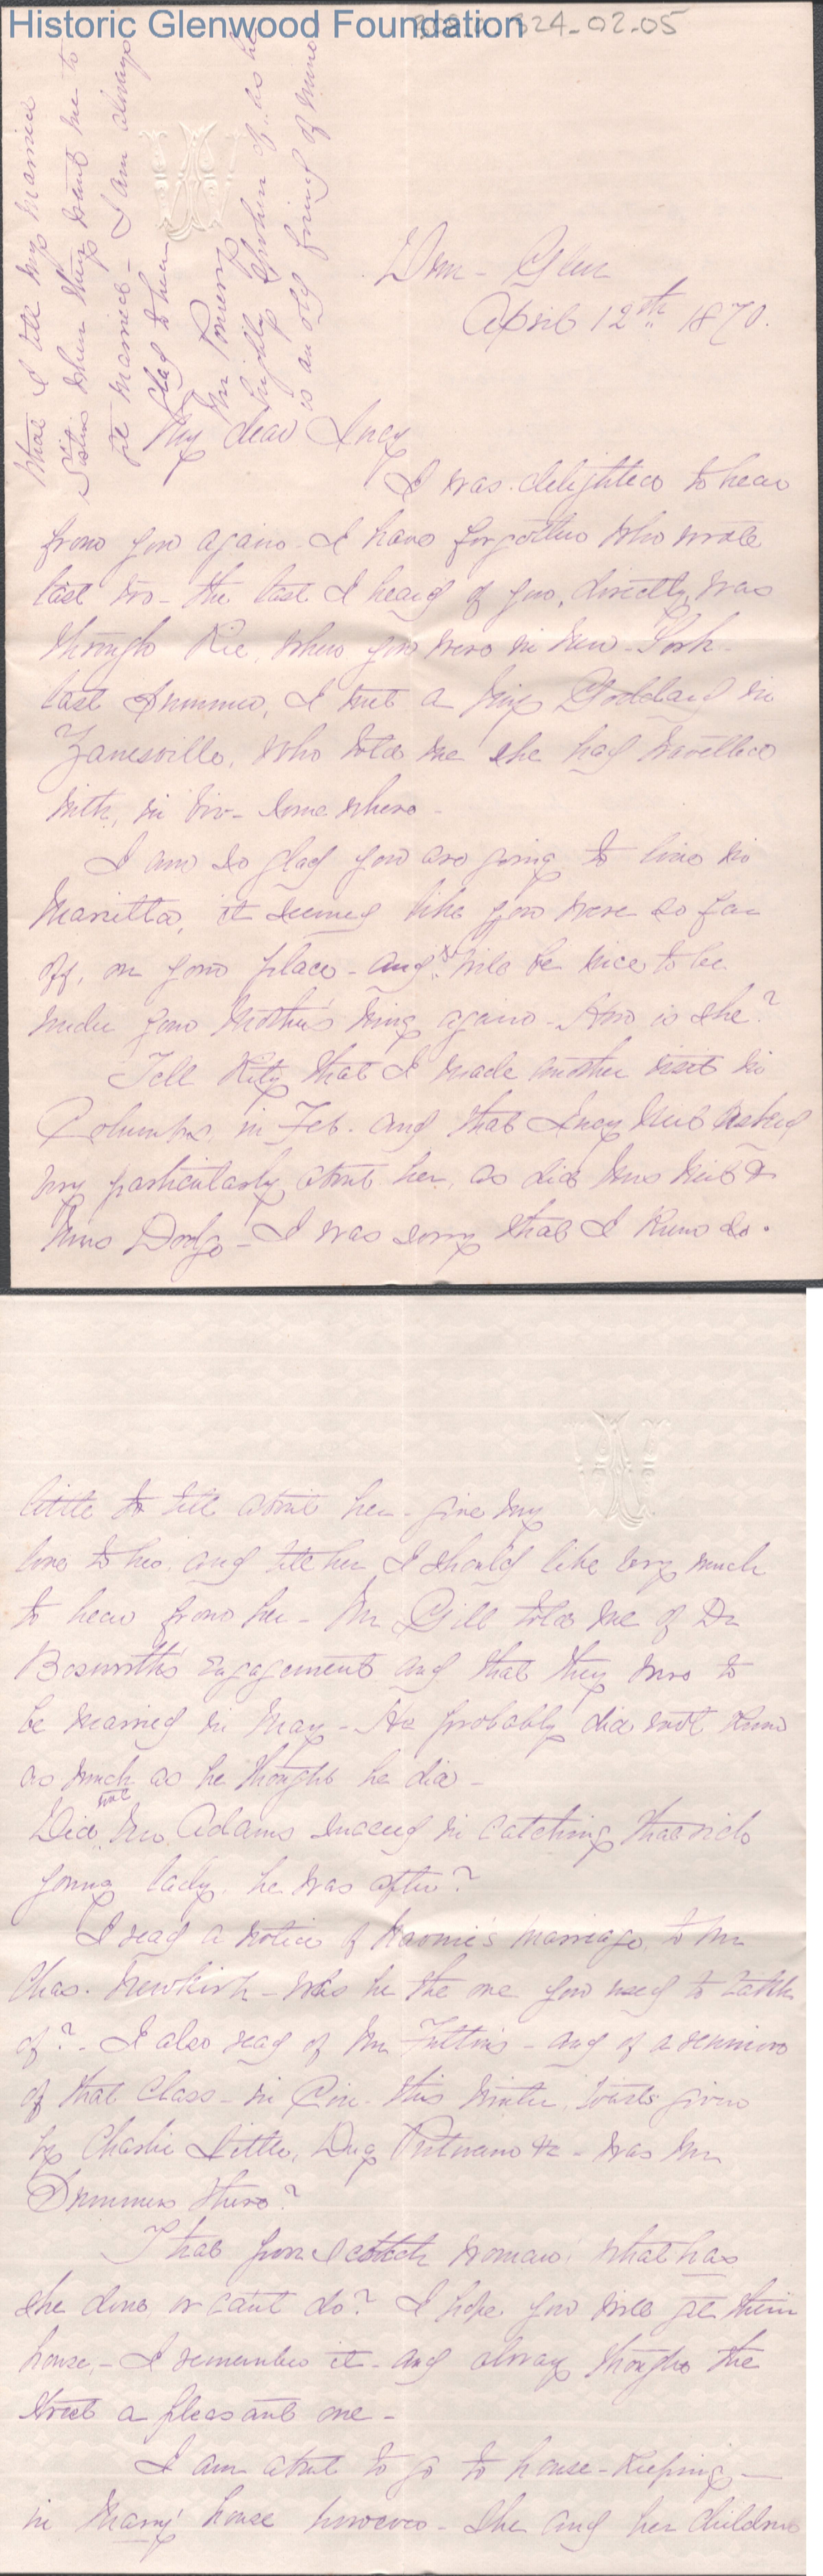 Historic Glenwood Foundation
324-02-05
What I tell my married
Sisters when they want me to
get married - I am always
glad to hear
Mr Pomeroy
highly spoken of. as he
is an old friend of mine
Glen
April 12th 1870.
My dear Lucy
I was delighted to hear
from you again - I have forgotten who wrote
last - the last I heard of you, directly, was
through Kee, when you were in New-York -
last Summer, I met a Miss Goddard in
Zanesville, who told me she had travelled
with, in some where -
I am so glad you are going to live in
Marietta, it seemed like you were so far
off, on your place - and it will be nice to be
under your Mother's wing again - How is she?
Tell Kity that I made another visit in
Columbus, in Feb. and that Lucy asked
very particularly about her, as did Mrs &
Mrs Dodge - I was sorry that I knew so.
little to tell about her - give my
love to her and tell her I should like very much
to hear from her - Mr Gill told me of Dr
Bosworth's engagement and that they were to
be married in May - He probably did not know
as much as he thought he did -
Did not Mr. Adams succeed in catching that rich
young lady, he was after?
I read a notice of Naomi's marriage to Mr
Chas. Newkirk - was he the one you used to talk
of? - I also read of Mr - and of a reunion
of that Class - in Cin - this winter, toasts given
by Charlie Little, Doug Putnam &c - was Mr
there?
That your Scotch woman! what has
she done or can't do? I hope you will get their
house, - I remember it - and always thought the
street a pleasant one -
I am about to go to house-keeping -
in Mary's house however - She and her children